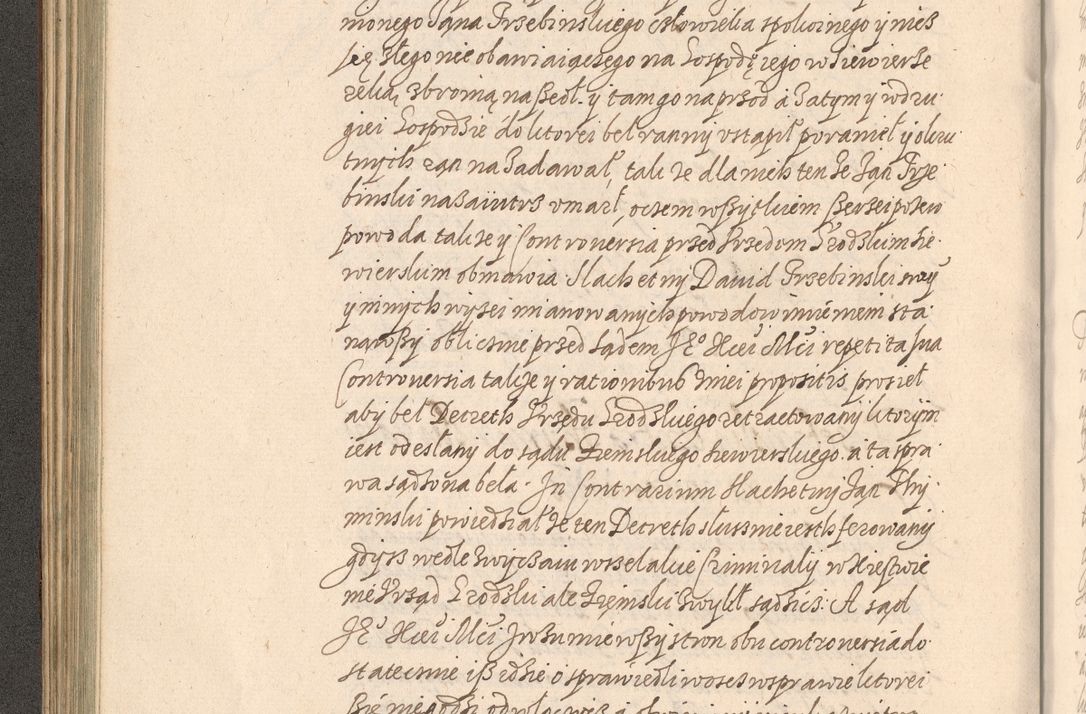 monego Jana Trzebinskiego człowieka spokoinego y nicz
się złego nie obawiaiączego na Gospodę iego w Siewierze
ręką zbroiną naszedł. y tam go naprzod a zatym y w dru
giei Gospodzie do ktorei bel ranny vstąpił poraniel y okru
tnych ran na zadawał, tak że dla nich ten że Jan Trze
binski nazaiutrz vmarł, oczem wszytkiem szerzei pozew
powoda takze y Controuersia przed Vrzedom Grodzkim Sie
wierskim obmowia. Slachetny Dawid Trzebinski swy
y ninych wyzei mianowanych powodow imieniem sta
nąwszy obliczme przed sądem Je° Xcei Mci repetita sua
Controuersia takze y rationibus in ei propositis prosieł
aby bel Decreth Vrzędu Grodzkiego retractowany ktorym
iest odesłany do sądu Ziemskiego Siewierskiego. a ta spra
wa sądzona bela. In Contrarium Slachetny Jan
minski powiedział że ten Decreth słusznie iesth ferowany
gdysz wedle zwyczaiu wszelakie Criminaly w Xięstwie
nie Vrząd Grodzki ale Ziemski zwykł sądzicz. A sąd
Je° Xcei Mci Zrozumiewszy stron obu controuersia do
statecznie isz idzie o sprawiedliwoscz w sprawie ktorei